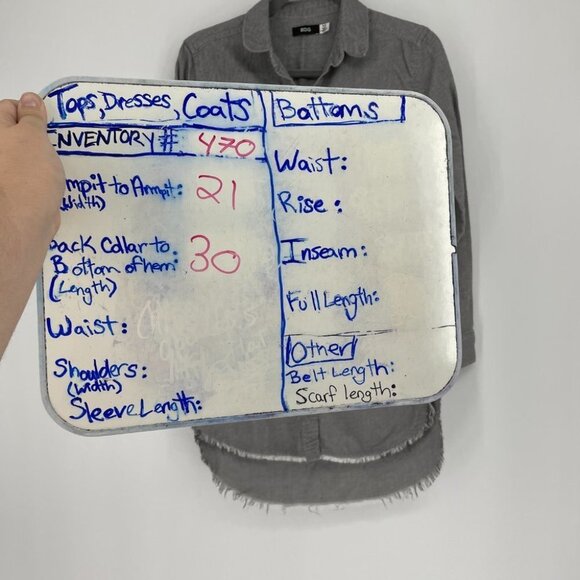 BDG
Tops, Dresses, Coats
INVENTORY # 470
mpit to Armpit: 21
(Width)
Back Collar to
Bottom of hem: 30
(Length)
Waist:
Shoulders:
(Width)
Sleeve Length:
Bottoms
Waist:
Rise:
Inseam:
Full Length:
Other
Belt Length:
Scarf length: